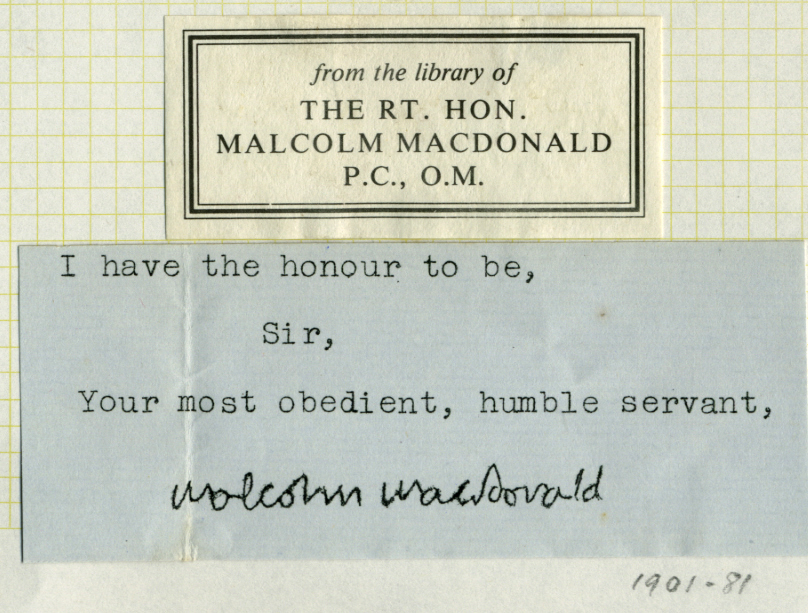 from the library of
THE RT. HON.
MALCOLM MACDONALD
P.C., O.M.
I have the honour to be,
Sir,
Your most obedient, humble servant,
Malcolm MacDonald
1901-81